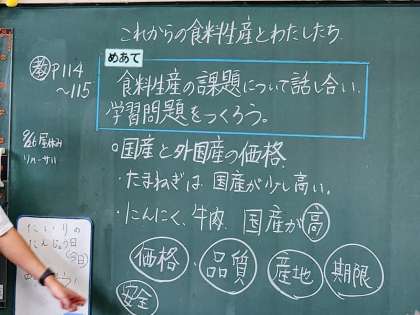 これからの食料生産とわたしたち
めあて
教P114
～115
食料生産の課題について話し合い、
学習問題をつくろう。
○国産と外国産の価格
・たまねぎは、国産が少し高い。
・にんにく、牛肉、国産が高
価格・品質 産地 期限
安全
昼休み
リハーサル
たんじょう日
今日